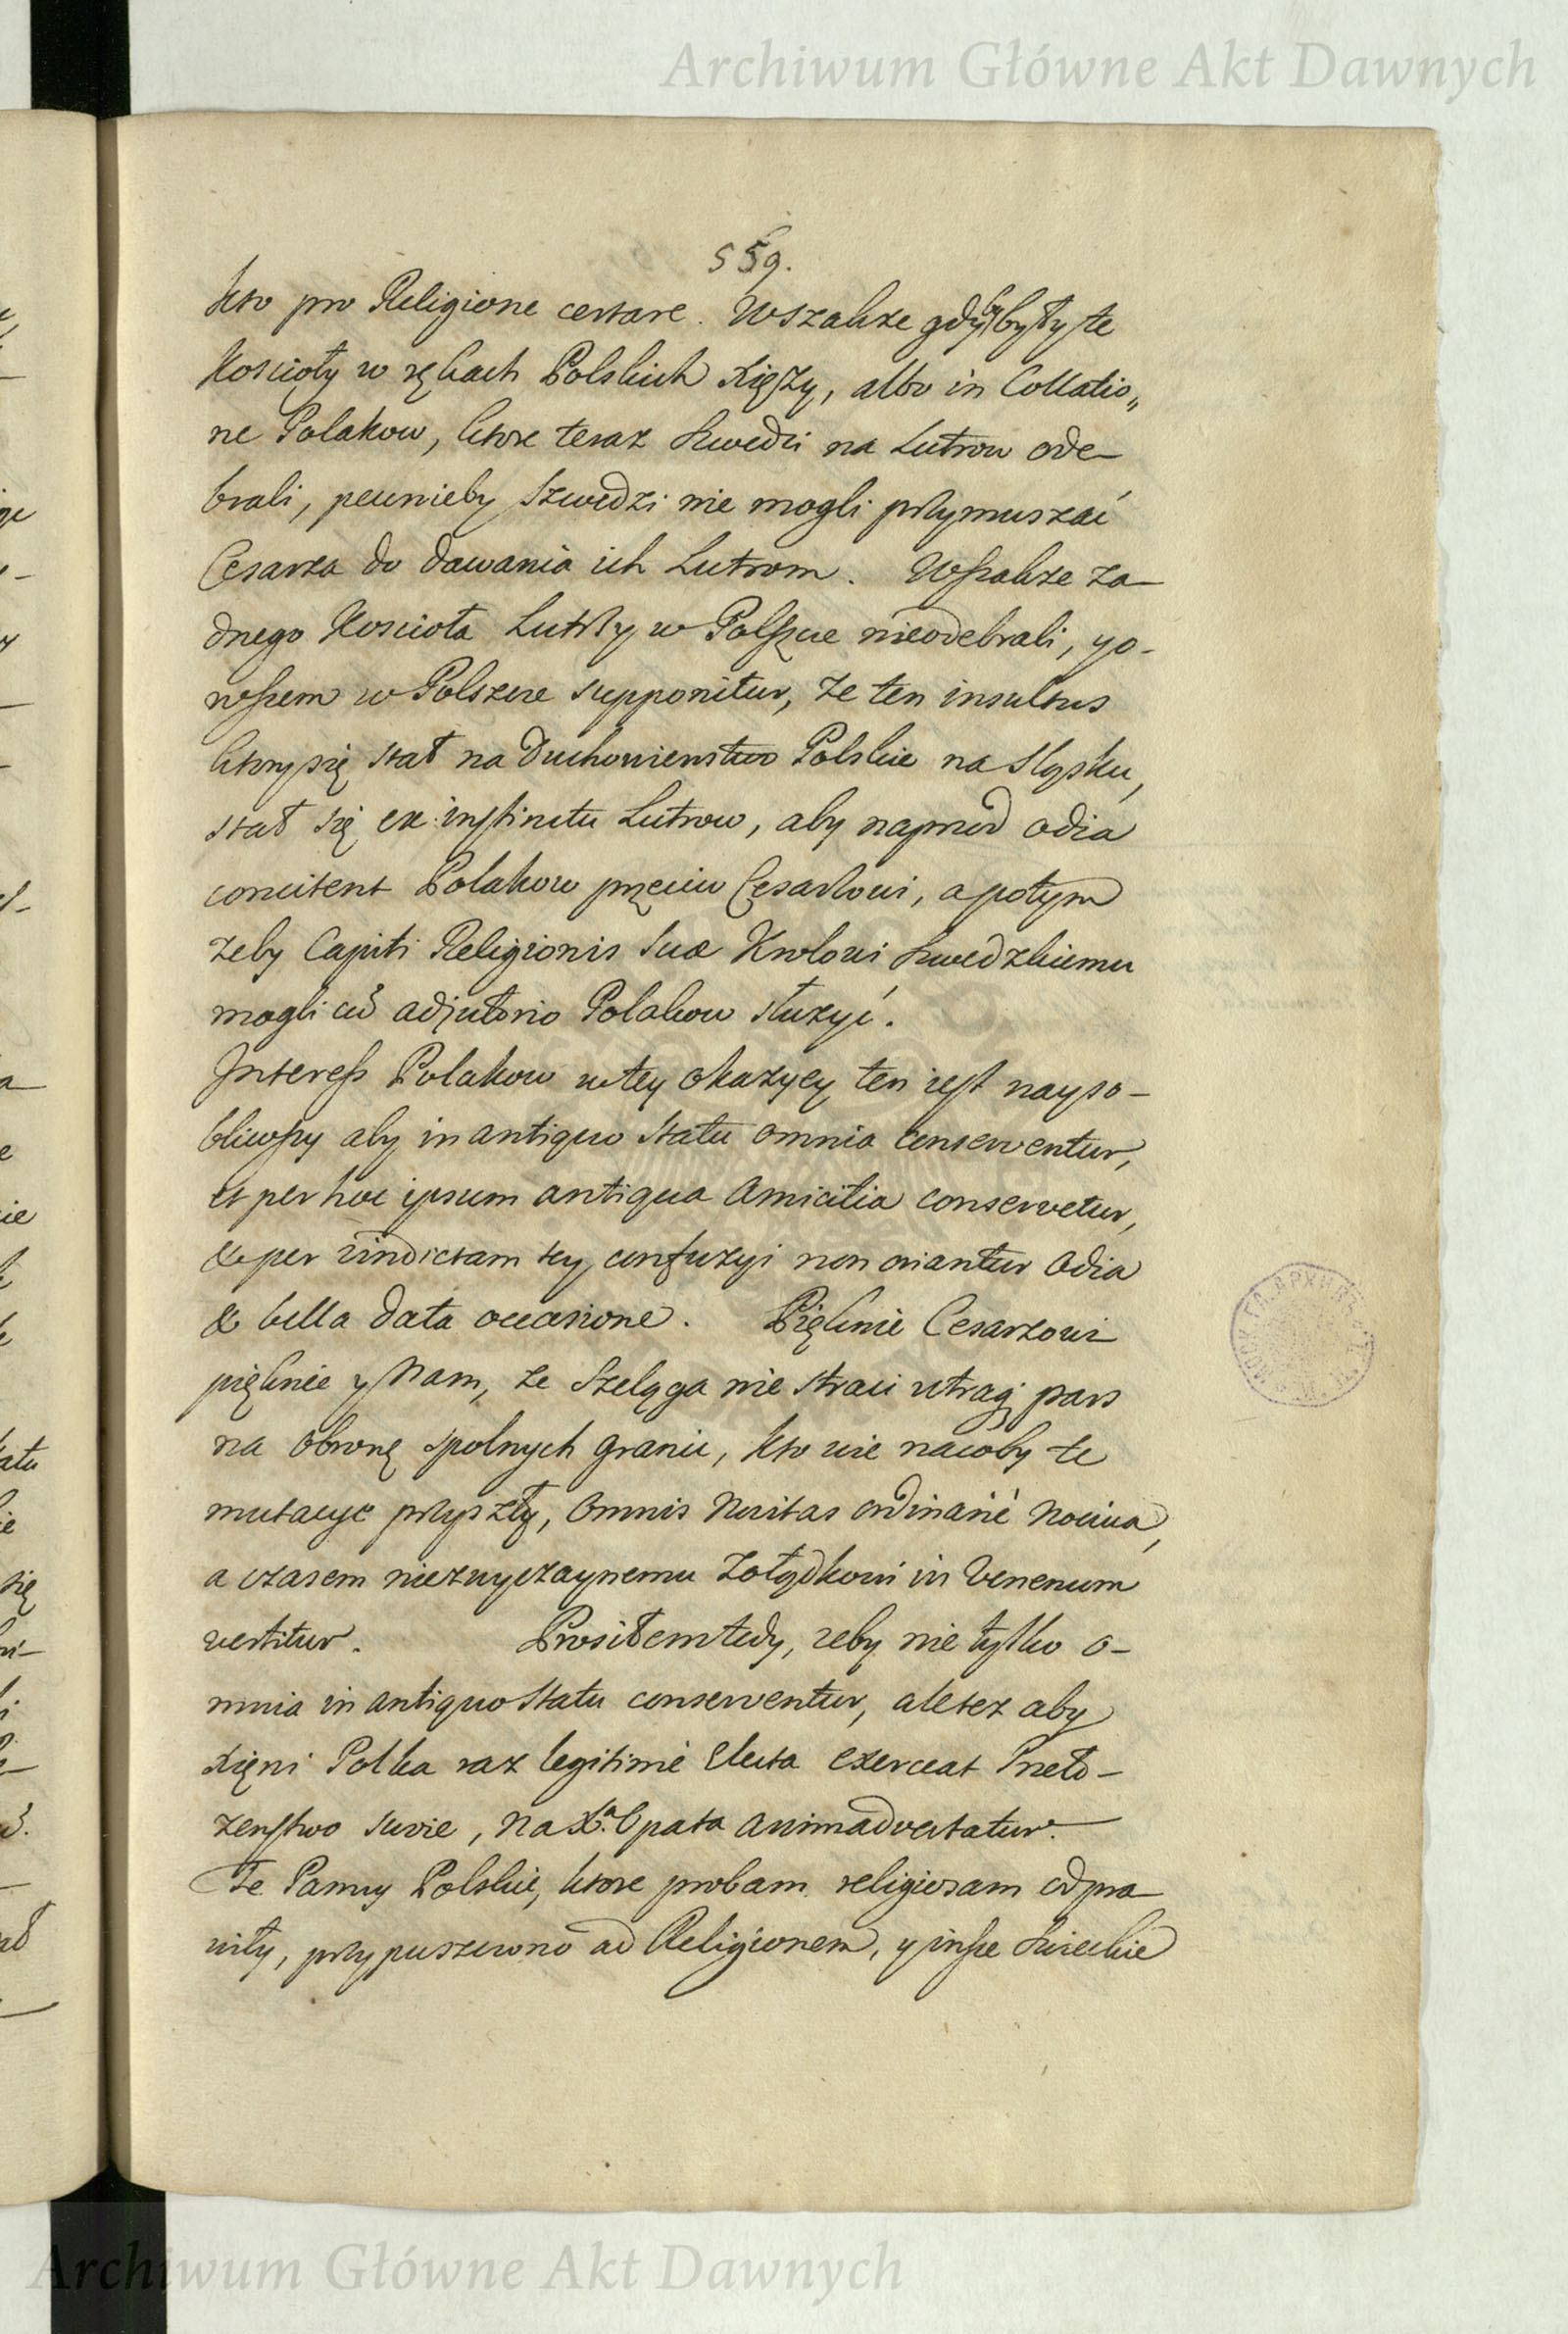 Archiwum Główne Akt Dawnych
559.
kto pro Religione certare. Wszakże gdyby były te
Kościoły w rękach Polskich Xięży, albo in Collatio„
ne Polakow, ktore teraz Szwedzi na Lutrow ode-
brali, pewnieby Szwedzi nie mogli przymuszać
Cesarza do dawania ich Lutrom. Wszakże ża-
dnego Kościoła Lutrzy w Polszcze nieodebrali, yo-
wszem w Polszcze supponitur, że ten insultus
ktory się stał na Duchowienstwo Polskie na Sląsku,
stał się ex instinctu Lutrow, aby naprzod odia
concitent Polakow przeciw Cesarzowi, a potym
żeby Capiti Religionis suæ Krolowi Szwedzkiemu
mogli cū adjutorio Polakow służyć.
Interess Polakow w tey okazycy ten iest nayso-
bliwszy aby in antiquo statu omnia conserventur,
et per hoc ipsum antiqua amicitia conservetur,
& per vindictam tey confuzyi non oriantur odia
& bella data occasione. Pięknie Cesarzowi
pięknie y Nam, że Szeląga nie straci utraq; pars
na obronę spolnych granic, kto wie nacoby te
mutacye przyszły, omnis Novitas ordinariè nociva,
a czasem niezwyczaynemu żołądkowi in venenum
vertitur. Prosiłem tedy, żeby nie tylko o-
mnia in antiquo statu conserventur, ale też aby
Xięni Polka raz legitimè electa exerceat Przeło-
żeństwo swoie, na Xa. Opata animadvertatur.
Te Panny Polskie, ktore probam religiosam odpra
wiły, przypuszczono ad Religionem, y insze Swieckie
Archiwum Główne Akt Dawnych